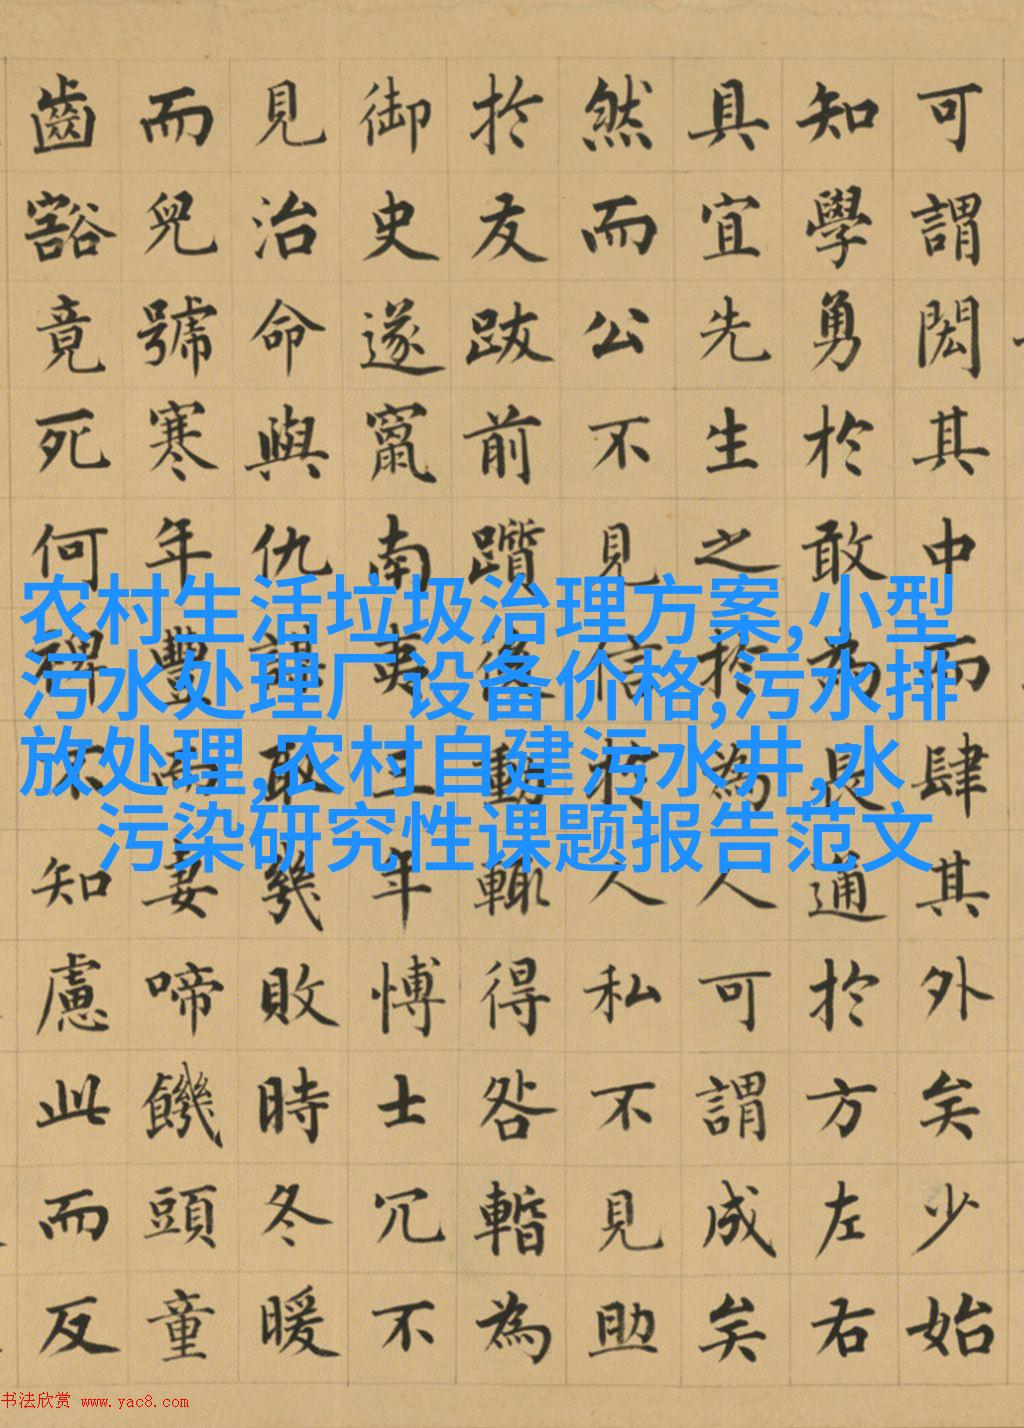 可謂閎其中而肆其外矣少始
知學勇於敢為長通於方左右
具宜先生之於為人可謂成矣
然而公不見信於人私不見助
於友跋前躓後動輒得咎暫為
御史遂竄南夷三年愽士冗不
見治命與仇謀取幾敗時冬暖
而兒號寒年豐而妻啼饑頭童
齒豁竟死何裨不知慮此而反
农村生活垃圾治理方案,小型
污水处理厂设备价格,污水排
放处理,农村自建污水井,水
污染研究性课题报告范文
书法欣赏 www.yac8.com